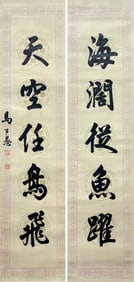 海闊從魚躍
天空任鳥飛